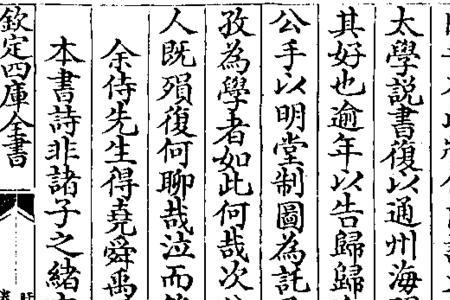 太學説書復以通州海
其好也逾年以告歸歸
公手以明堂制圖為託
孜為學者如此何哉次
人既殞復何聊哉泣而
余侍先生得堯舜禹
本書詩非諸子之緒
欽定四庫全書